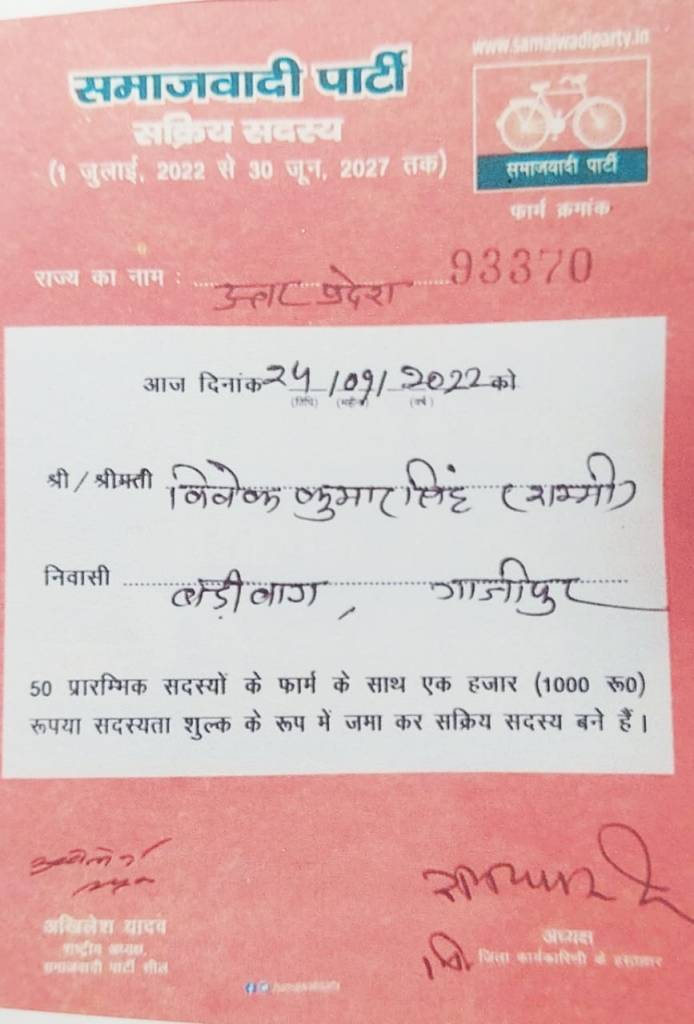 www.samajwadiparty.in
समाजवादी पार्टी
सक्रिय सदस्य
(1 जुलाई, 2022 से 30 जून, 2027 तक)
समाजवादी पार्टी
फार्म क्रमांक
93370
राज्य का नाम : उत्तर प्रदेश
आज दिनांक 24/09/2022 को
(तिथि) (महीना) (वर्ष)
श्री / श्रीमती विवेक कुमार सिंह (शम्मी)
निवासी बड़ीबाग, गाजीपुर
50 प्रारम्भिक सदस्यों के फार्म के साथ एक हजार (1000 रू0)
रूपया सदस्यता शुल्क के रूप में जमा कर सक्रिय सदस्य बने हैं।
अखिलेश यादव
राष्ट्रीय अध्यक्ष,
समाजवादी पार्टी सील
अध्यक्ष
जिला कार्यकारिणी के हस्ताक्षर
/samajwadiparty